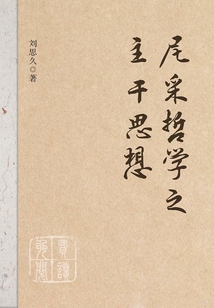 尼采哲学之
主干思想
刘思久◎著